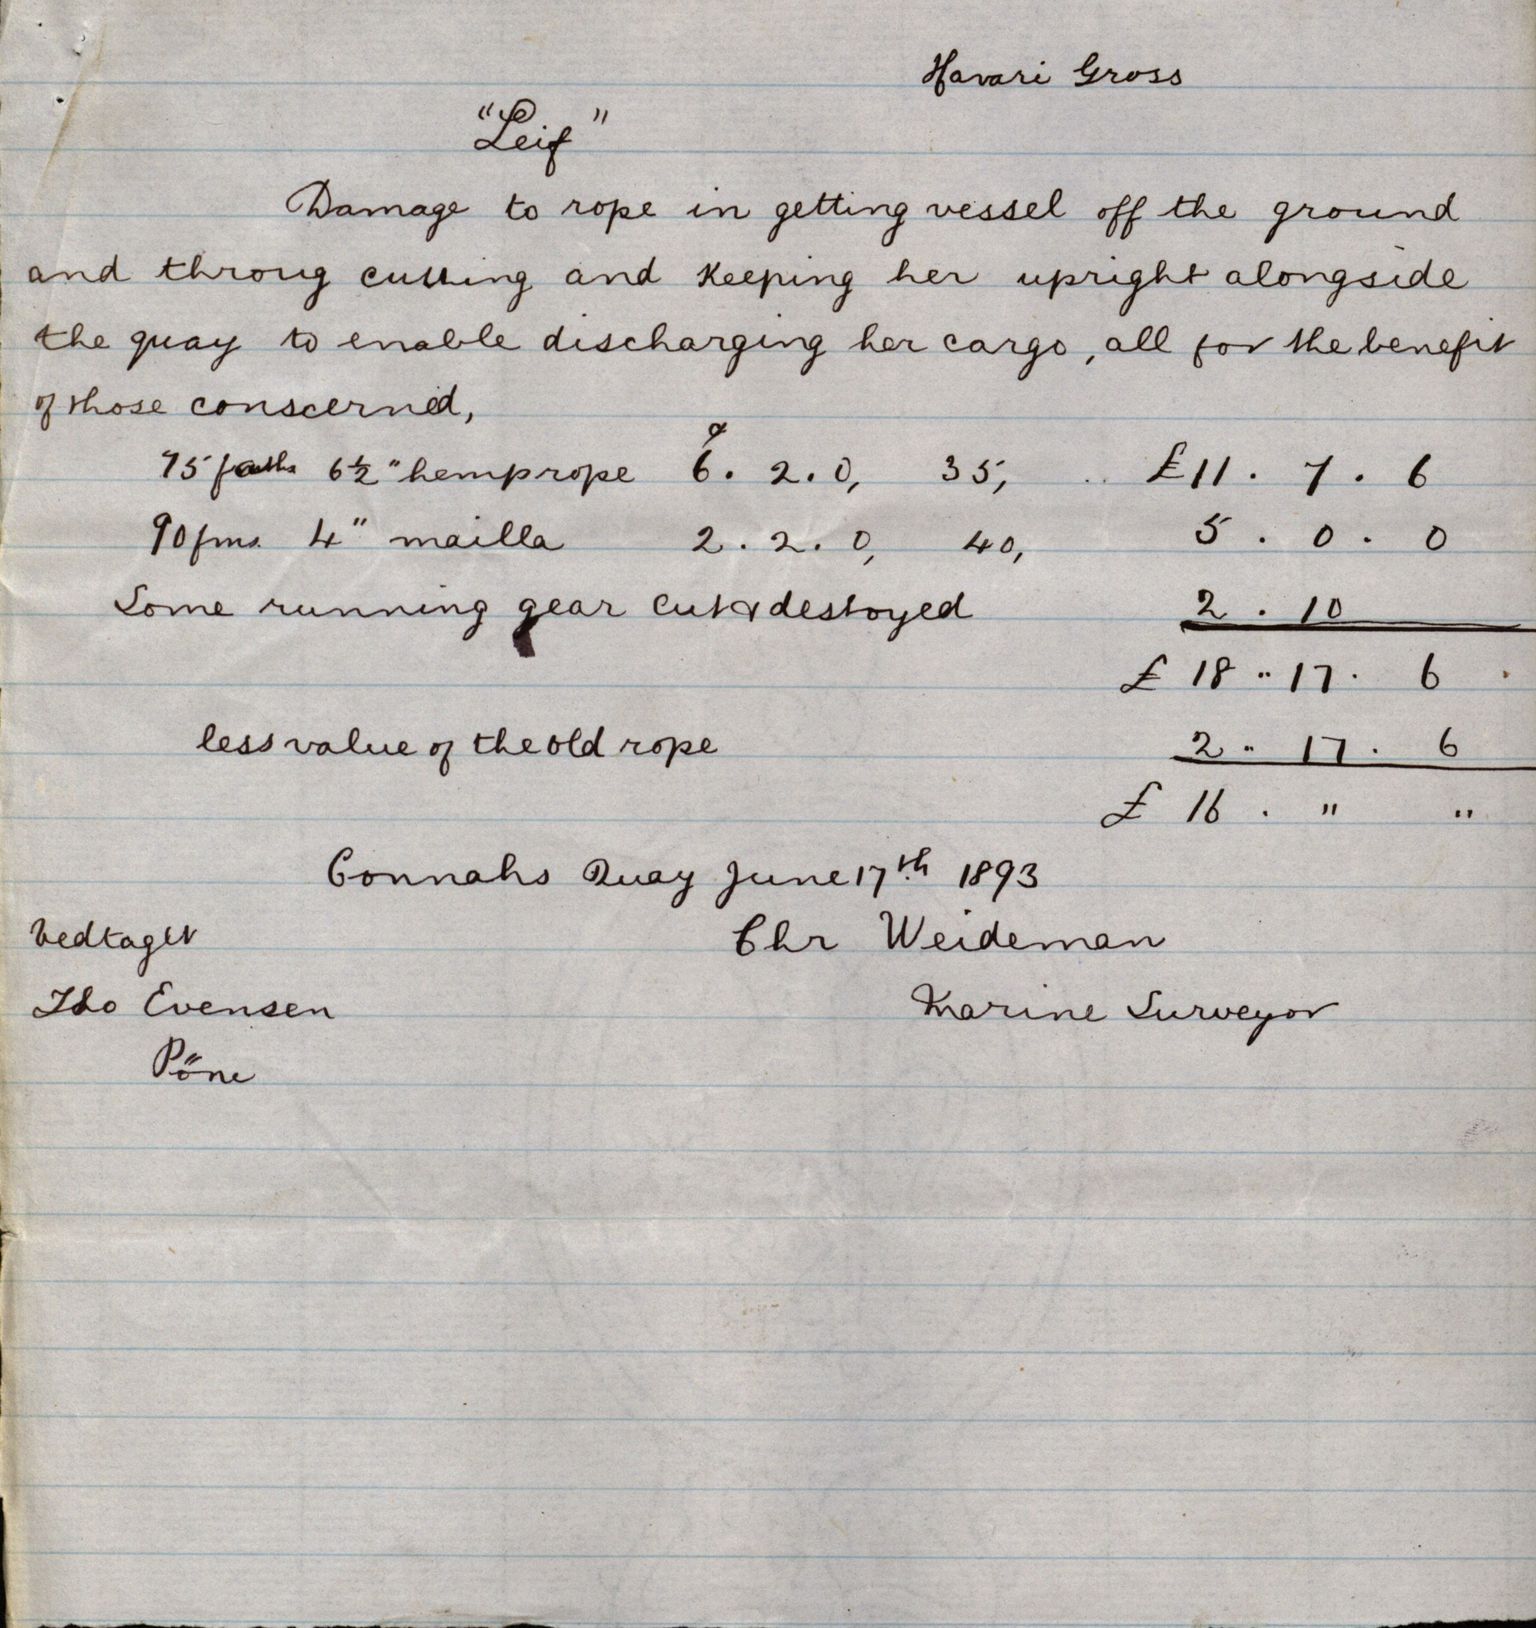 Havari Gross
"Leif"
Damage to rope in getting vessel off the ground
and throug cutting and Keeping her upright alongside
the quay to enable discharging her cargo, all for the benefit
of those conscerned,
75 faths 6½" hemprope 6. 2. 0, 35, £11. 7. 6
90 fms. 4" mailla 2. 2. 0, 40, 5. 0. 0
Some running gear cut & destoyed 2. 10
£ 18 " 17. 6
less value of the old rope 2 " 17. 6
£ 16. " "
Connahs Quay June 17th 1893
Vedtaget Chr Weideman
Evensen Marine Surveyor